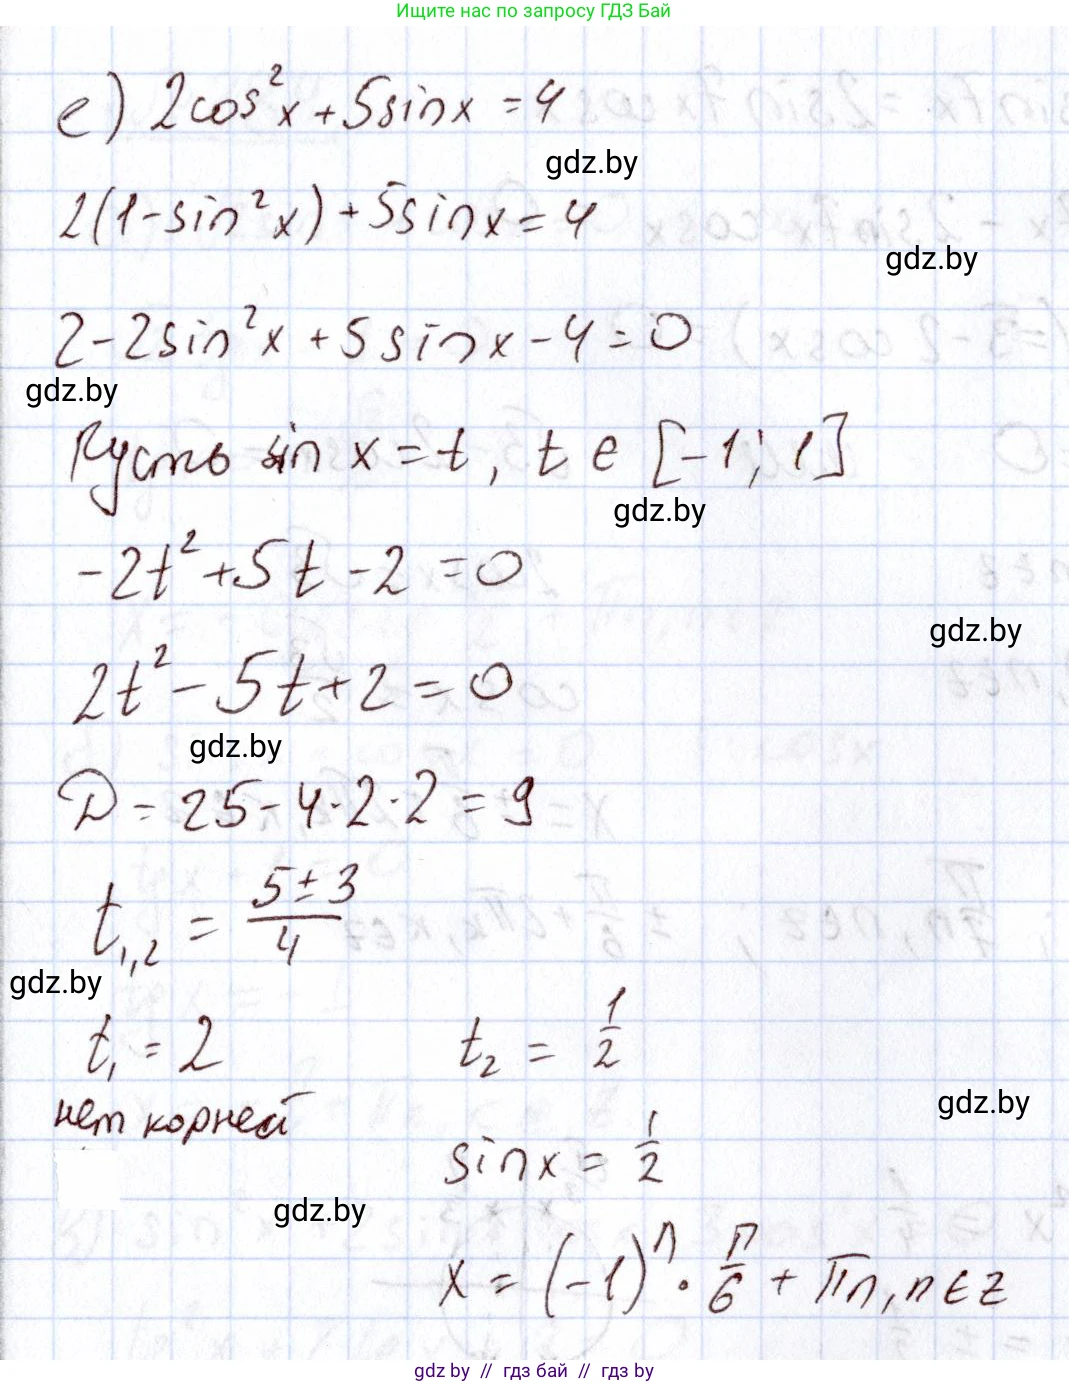 Ищите нас по запросу ГДЗ Бай
е) 2cos²x + 5sinx = 4
gdz.by
2(1-sin²x) + 5sinx = 4
gdz.by
2 - 2sin²x + 5sinx - 4 = 0
gdz.by
Пусть sin x = t, t ∈ [-1; 1]
gdz.by
-2t² + 5t - 2 = 0
gdz.by
2t² - 5t + 2 = 0
gdz.by
D = 25 - 4·2·2 = 9
t₁,₂ = (5 ± 3)/4
gdz.by
t₁ = 2 t₂ = 1/2
нет корней
gdz.by
sinx = 1/2
gdz.by
x = (-1)ⁿ · π/6 + πn, n ∈ Z
gdz by // гдз бай // гдз by